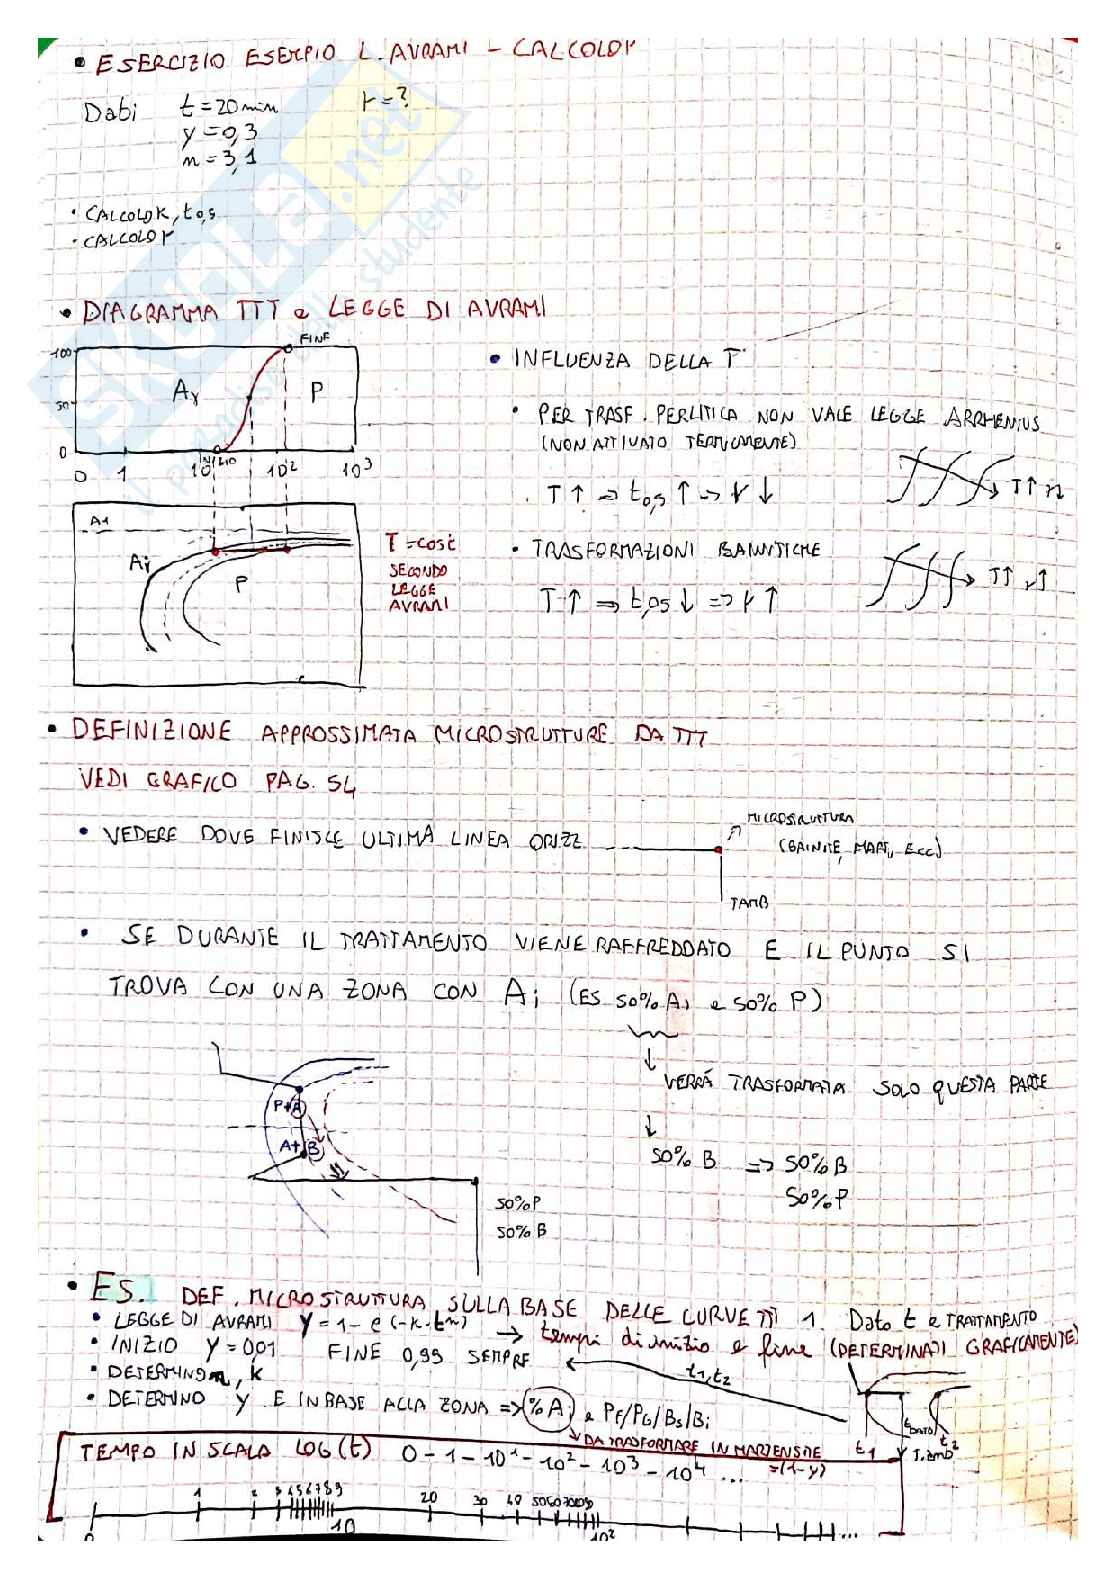 • ESERCIZIO ESEMPIO L. AVRAMI - CALCOLO r
Dati t = 20 min r = ?
y = 0,3
n = 3,1
• CALCOLO K, t0,5
• CALCOLO r
• DIAGRAMMA TTT e LEGGE DI AVRAMI
FINE
100
50
0
Aγ
P
INIZIO
0 1 10¹ 10² 10³
A1
Ai
P
T=cost
SECONDO
LEGGE
AVRAMI
• INFLUENZA DELLA T
• PER TRASF. PERLITICA NON VALE LEGGE ARRHENIUS
(NON ATTIVATO TERMICAMENTE)
T↑ ⇒ t0,5 ↑ → r ↓
T↑ r↓
• TRASFORMAZIONI BAINITICHE
T↑ ⇒ t0,5 ↓ => r ↑
T↑, r↑
• DEFINIZIONE APPROSSIMATA MICROSTRUTTURE DA TTT
VEDI GRAFICO PAG. 54
• VEDERE DOVE FINISCE ULTIMA LINEA ORIZZ
MICROSTRUTTURA
(BAINITE, MART, Ecc)
TAMB
• SE DURANTE IL TRATTAMENTO VIENE RAFFREDDATO E IL PUNTO SI
TROVA CON UNA ZONA CON Ai (ES 50% Ai e 50% P)
↓
VERRÁ TRASFORMATA SOLO QUESTA PARTE
↓
50% B => 50% B
50% P
P+A
A+B
50% P
50% B
• ES. DEF. MICROSTRUTTURA SULLA BASE DELLE CURVE TTT 1. Dato t e TRATTAMENTO
• LEGGE DI AVRAMI y = 1 - e(-k·tn) → tempi di inizio e fine (DETERMINATI GRAFICAMENTE)
• INIZIO y = 001 FINE 0,99 SEMPRE
t1, t2
• DETERMINO n, k
• DETERMINO y E IN BASE ALLA ZONA => %Ai e Pf/PG/Bs/Bi
↓ DA TRASFORMARE IN MARTENSITE
=(1-y)
t DATO
t1
t2
T.amb
TEMPO IN SCALA LOG(t) 0 - 1 - 10¹ - 10² - 10³ - 10⁴ ...
1 2 3 4 5 6 7 8 9 20 30 40 50 60 70 80 90
0 10 10² ...